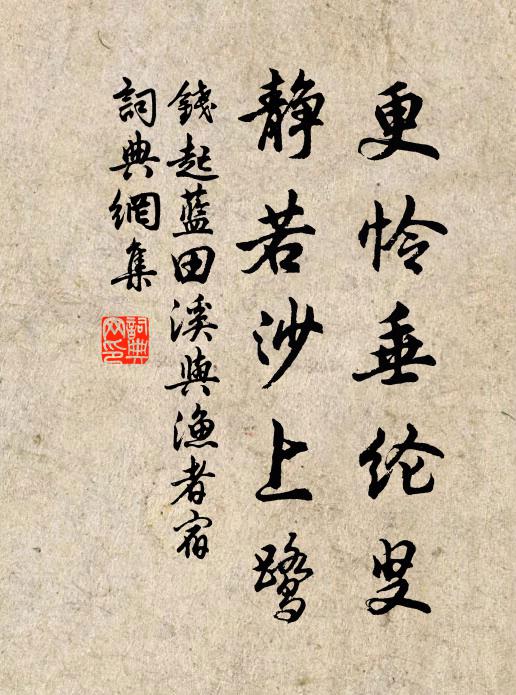 更怜垂纶叟
静若沙上鹭
錢起藍田溪與漁者宿
詞典網集
詞典
网印